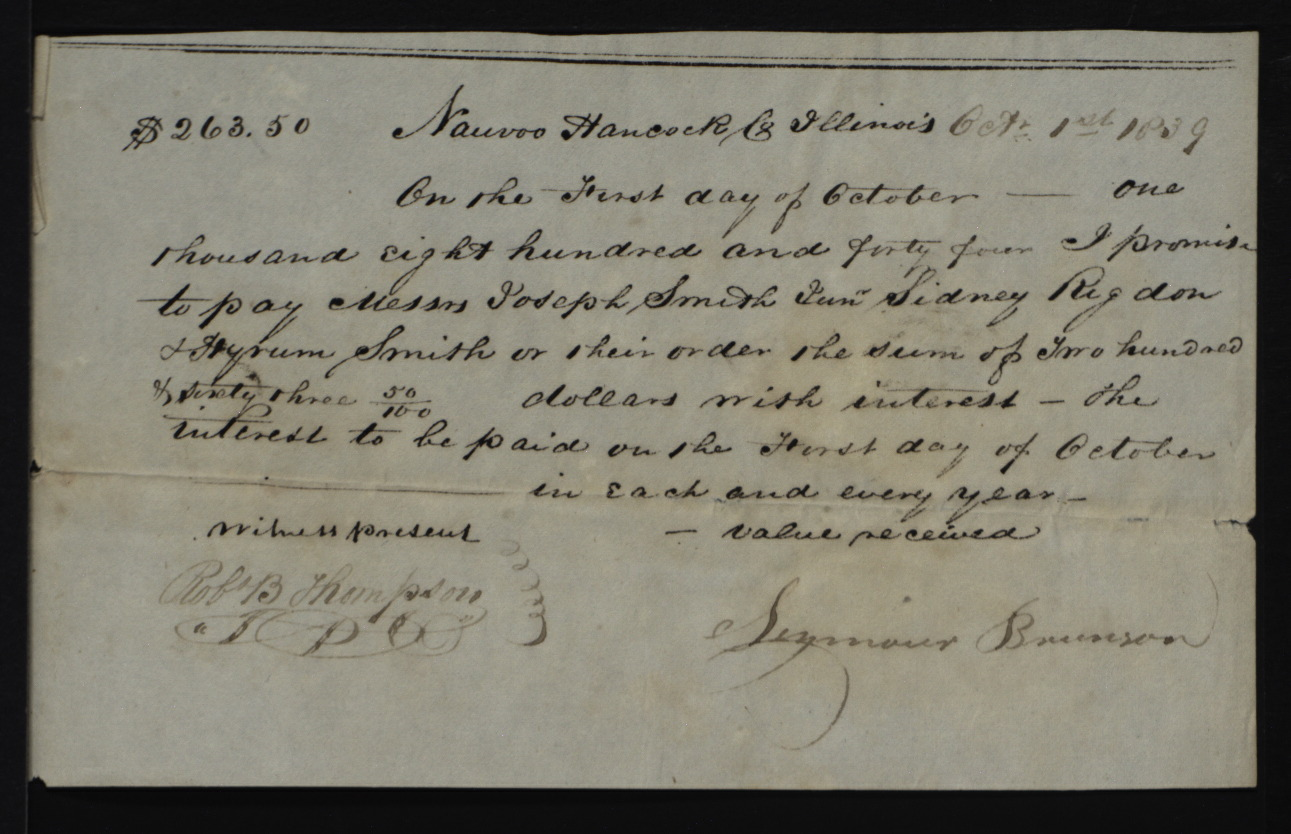 $263.50 Nauvoo Hancock Co Illinois Octr. 1st 1839
On the First day of October — one
thousand eight hundred and forty four I promise
to pay Messrs Joseph Smith Junr Sidney Rigdon
& Hyrum Smith or their order the sum of Two hundred
& sixty three 50/100 dollars with interest — the
interest to be paid on the First day of October
— in Each and every year —
Witness present — value received
Robt B Thompson
Seymour Brunson